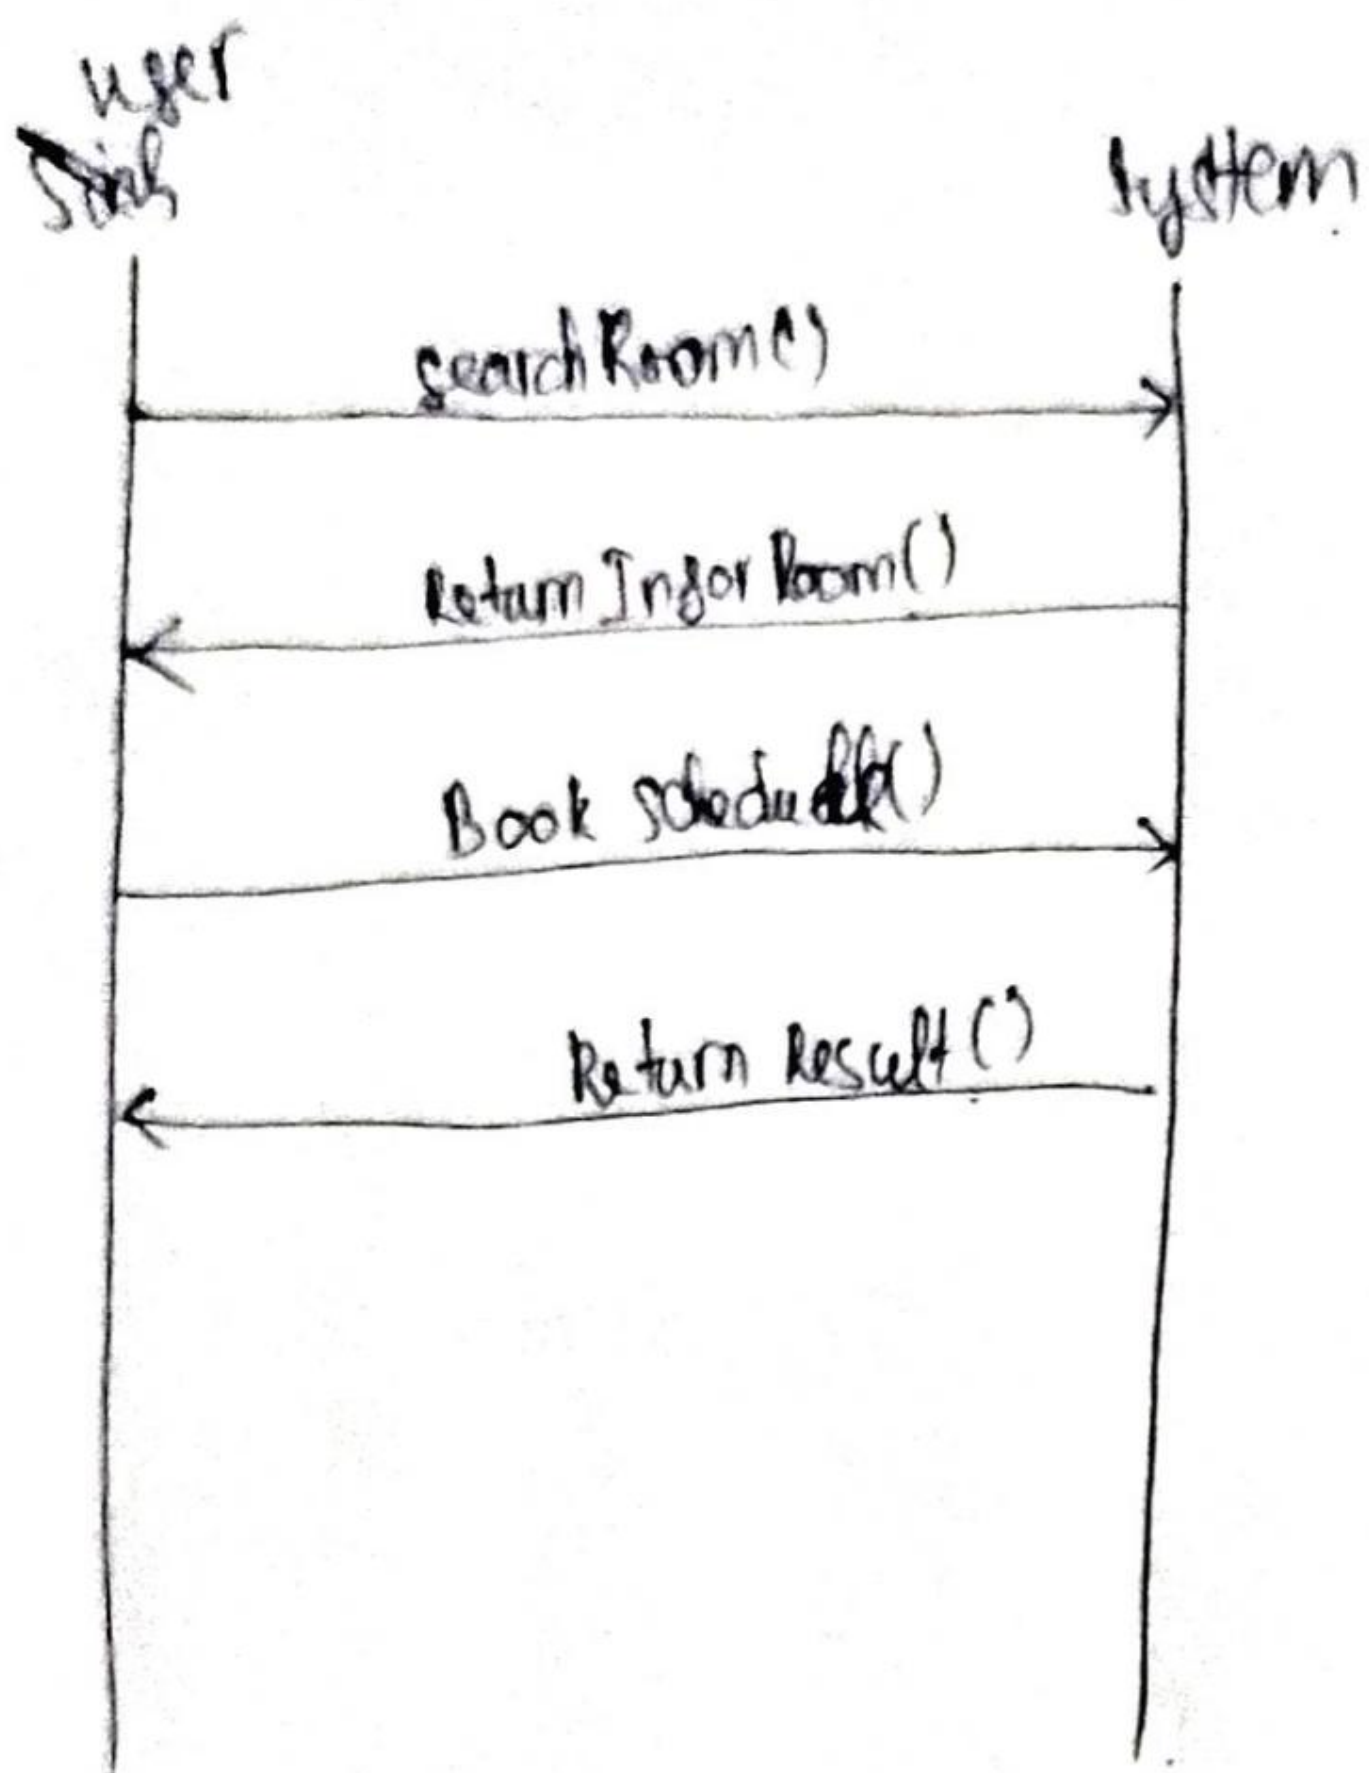 user
system
searchRoom()
Return Infor Room()
Book schedule()
Return Result()